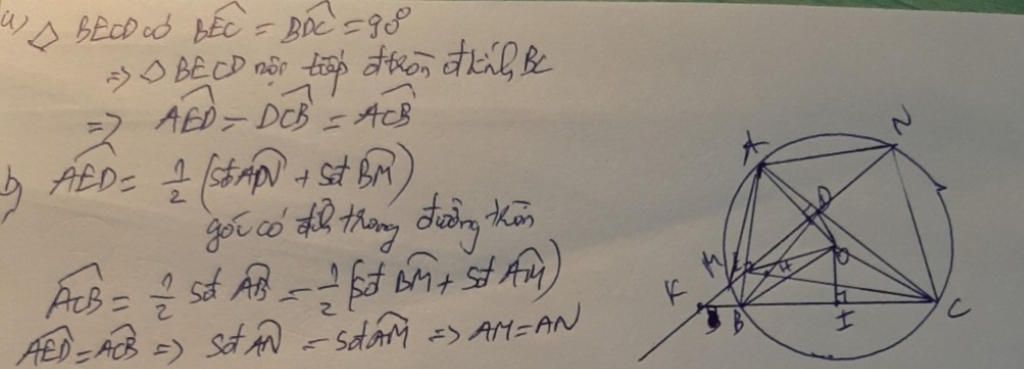 a) ◇ BECD có \widehat{BEC} = \widehat{BDC} = 90°
=> ◇ BECD nội tiếp đtròn đkính BC
=> \widehat{AED} = \widehat{DCB} = \widehat{ACB}
b) \widehat{AED} = 1/2 (sđ \widehat{AN} + sđ \widehat{BM})
góc có đỉnh trong đường tròn
\widehat{ACB} = 1/2 sđ \widehat{AB} = 1/2 (sđ \widehat{BM} + sđ \widehat{AM})
\widehat{AED} = \widehat{ACB} => sđ \widehat{AN} = sđ \widehat{AM} => AM = AN
A
N
D
M
E
H
O
K
B
I
C